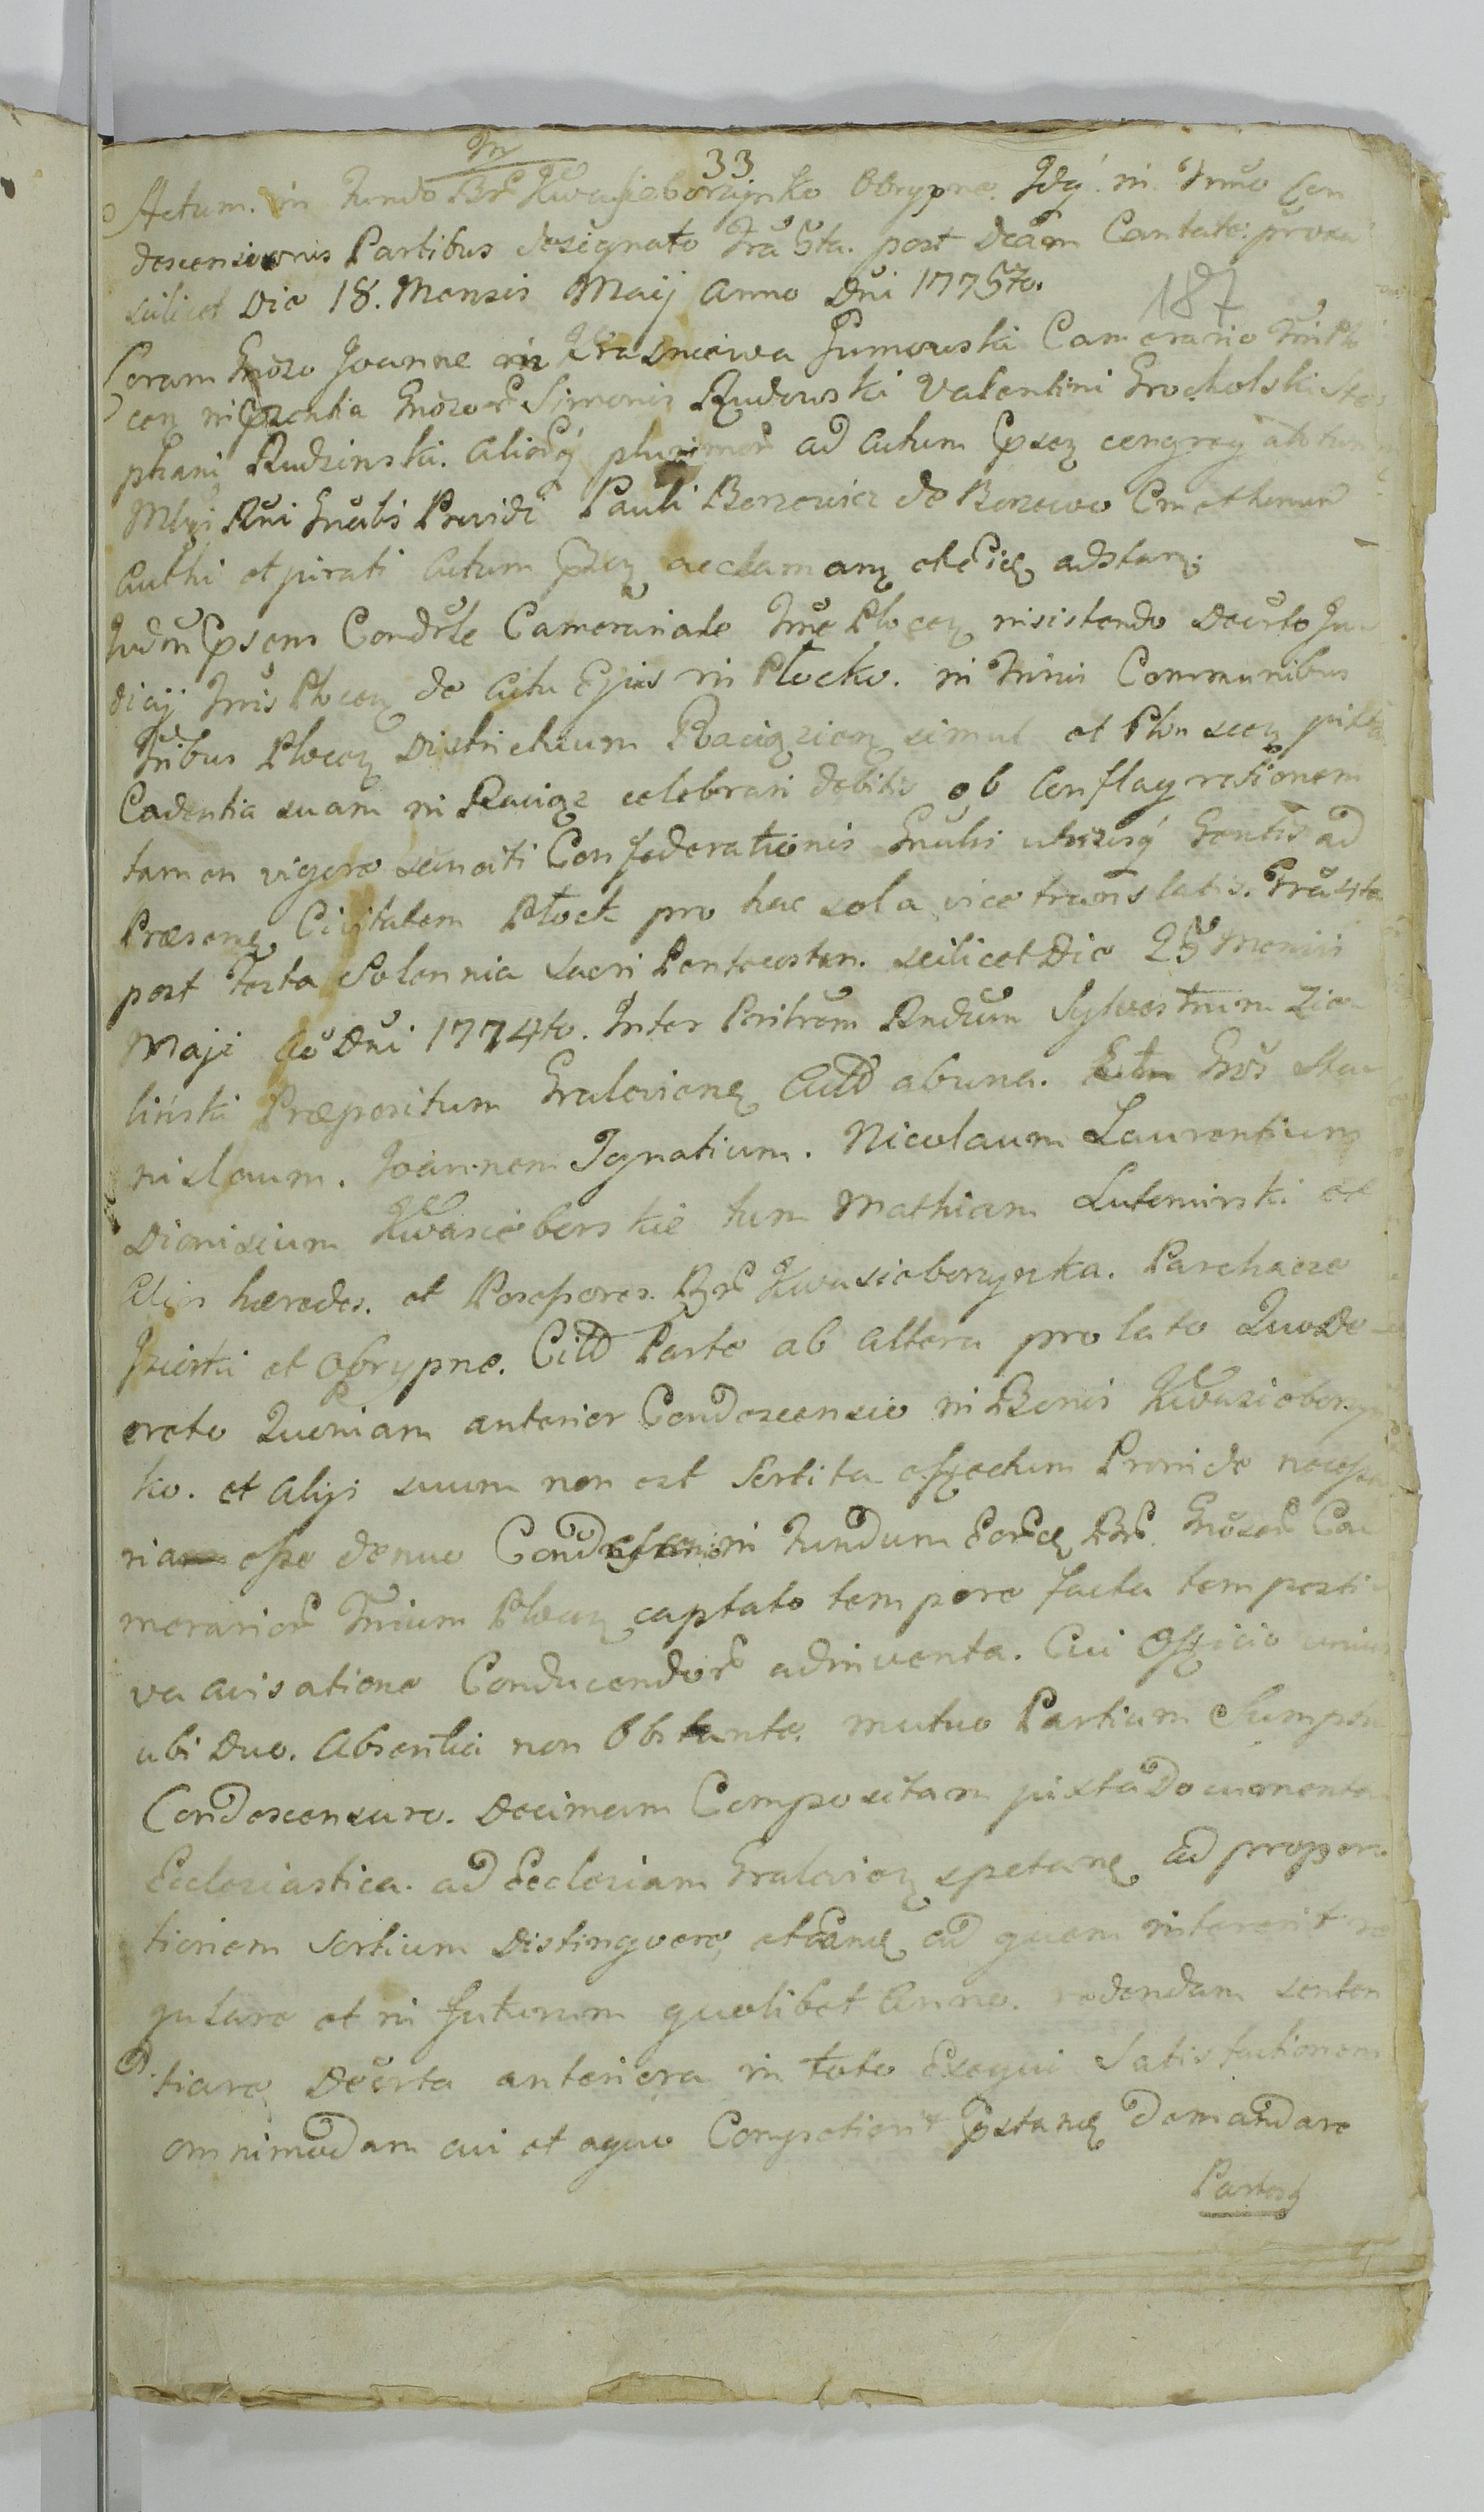 m
33
Actum. in Fundo Br̃ Kwasieborzynko Obrypne. Idq́. in Tmõ Con
descensionis Partibus designato Frã 5ta. post Dcãm Cantate proxã
scilicet Die 18. Mensis Maij Anno Dñi 1775to.
187
Coram Gnõso Joanne in Krasniewa Gumowski Camerario Trrli Plo
cen̨ in P̃ntia Gnõsor̃ Simonis Rudowski Valentini Grocholski Ste
phani Rudzinski. aliorq́ plurimor̃ ad Actum P̃sen̨ congreg
Pauli Borzewicz de Borzewo Cmethonum
Authi et jurati Actum P̃sen̨ acclaman̨ adstan̨.
Judm̃ P̃sens Condr̃le Camerariale Trrẽ Plocen̨ insistendo Decr̃to Ju
dicij Trrris Plocen̨ de Actu Ejus in Płocko. in Trmis Communibus
Trribus Plocen̨ Districtuum Raciązien̨ simul et Plonscen̨ juxta
Cadentia suam in Raciąz celebrari debitis ob Conflagrationem
tamen vigore sanciti Confederationis Gnrlis utriusq́ Gentis ad
Præsenę Civitatem Płock pro hac sola vice translatis. Frã 4ta
post Festa Solennia Sacri Pentecosten. scilicet Die 25 Mensis
Maji Aõ Dñi 1774to. Inter Perilrem̃ Rndum̃ Sylvestrum Zie
liński Præpositum Gralevienę Actõ ab una. Gños Sta
nislaum. Joannem Ignatium. Nicolaum Laurentium
Dionisium Kwasieborskie tum Mathiam Lutomirski et
Alijs hæredes. et Possessores. Br̃ Kwasieborzynka. Parchacze
Jzierki et Obrypne. Citõ Parte ab altera prolato Quo De
creto Quoniam anterior Condescensio in Bonis Kwasieborzyn
ko. et alijs suum non est Sortita effectum Proinde necessa
ria esse denuo Condescensionem in Fundum Eorcę Br̃. Gnõsor̃ Ca
merarior̃ Trrium Plocen̨ captato tempore facta tempesti
va avisatione Conducendor̃ adinventa. Cui Officio unius
ubi Duo. Absentia non Obstante. mutuo Partium Sumptu
Condescensuro. Decimam Compositam juxta Documenta
Ecclesiastica. ad Ecclesiam Gralevien̨ spectanę ad propor
tionem Sortium Distinguere, et ad quem intererit re
gulare et in futurum quolibet Anno. reddendam senten
tiare, Decr̃ta anteriora in toto Exequi Satisfactionem
omnimodam cui et a quo Competierit P̃stanę Demandare
Partesq́